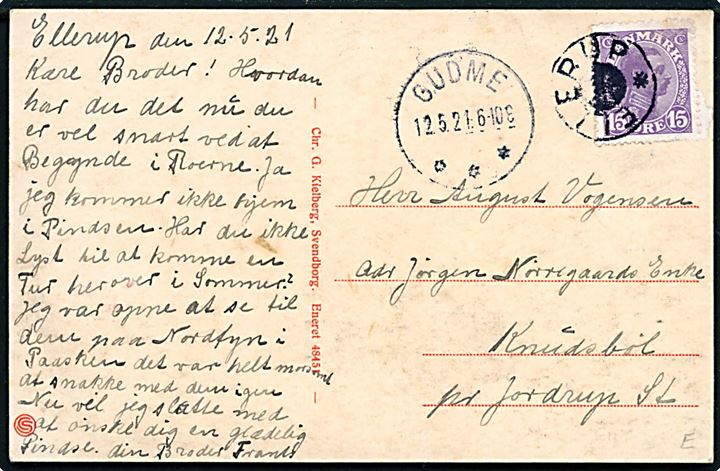 Ellerup den 12.5.21
Kære Broder! Hvordan
har du det nu du
er vel snart ved at
Begynde i Roerne. Ja
jeg kommer ikke hjem
i Pindsen. Har du ikke
Lyst til at komme en
Tur herover i Sommer?
Jeg var oppe at se til
dem paa Nordfyn i
Paasken det var helt morsomt
at snakke med dem igen
Nu vil jeg slutte med
at ønske dig en glædelig
Pindse. din Broder Frants
Chr. G. Kielberg, Svendborg. Eneret 4845
GUDME
12.5.21.6-10E
ELLERUP
DANMARK
15 ØRE 15
Herr August Vogensen
Adr Jørgen Nørregaards Enke
Knudsbøl
pr Jordrup St
S
E